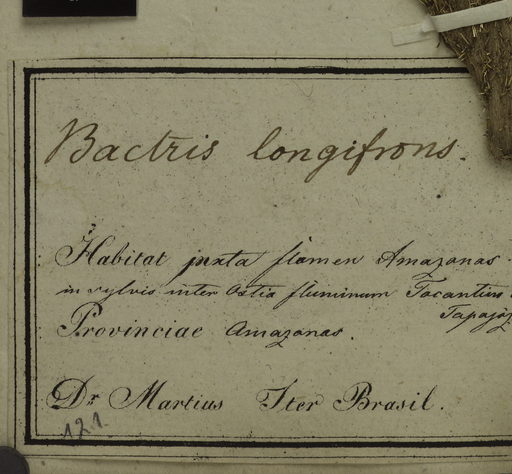 Bactris longifrons.
Habitat juxta flumen Amazonas
in sylvis inter Ostia fluminum Tocantins
Tapajóz
Provinciae Amazonas.
Dr Martius Iter Brasil.
121